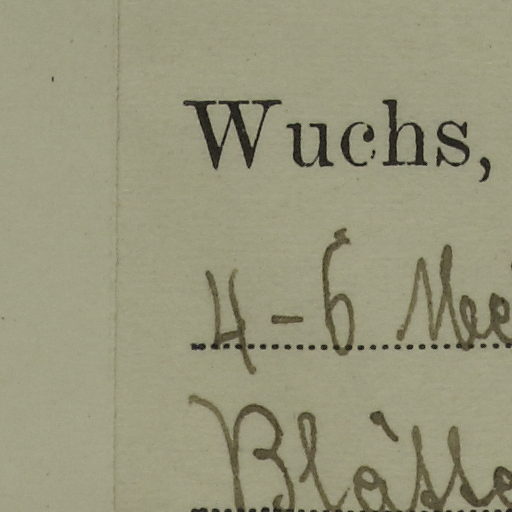 Wuchs,
4-6 Me
Blätte